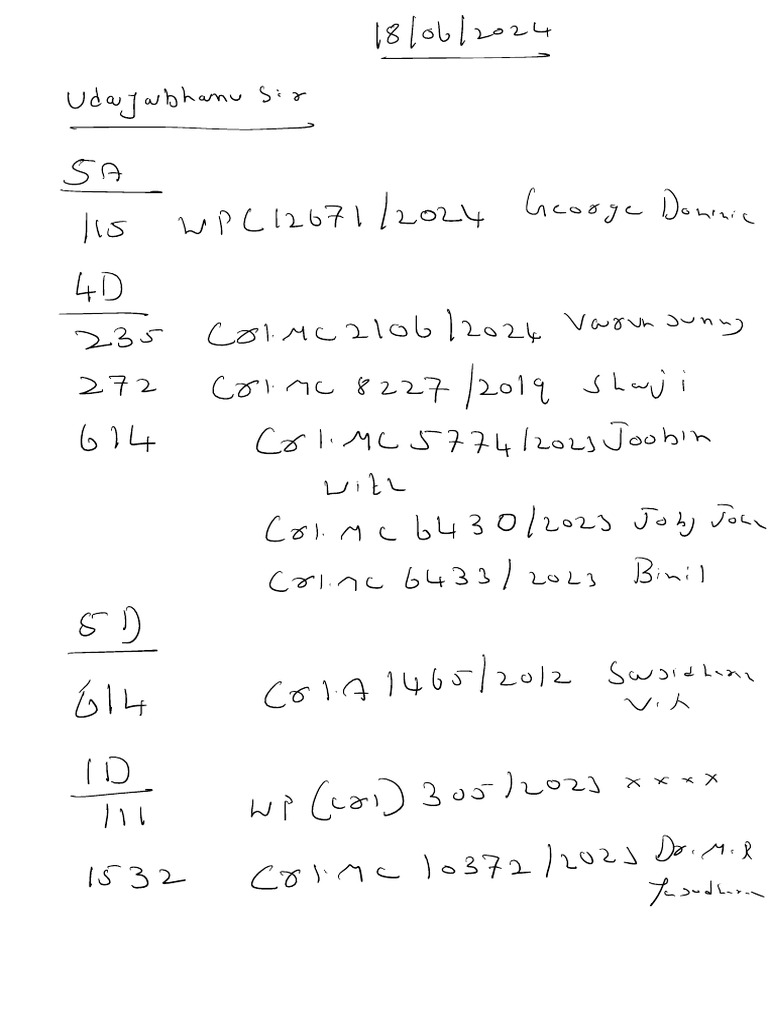 18/06/2024
Udayabhanu Sir
5A
115 WPC 12671/2024 George Dominic
4D
235 Crl.MC 2106/2024 Varun Sunny
272 Crl.MC 8227/2019 Shaji
614 Crl.MC 5774/2023 Joobin
with
Crl.MC 6430/2023 Joby
Crl.MC 6433/2023 Binil
5D
614 Crl.A 1465/2012
1D
111 WP (Crl) 305/2023 xxxx
1532 Crl.MC 10372/2023 Dr. M.R
Yasudharan